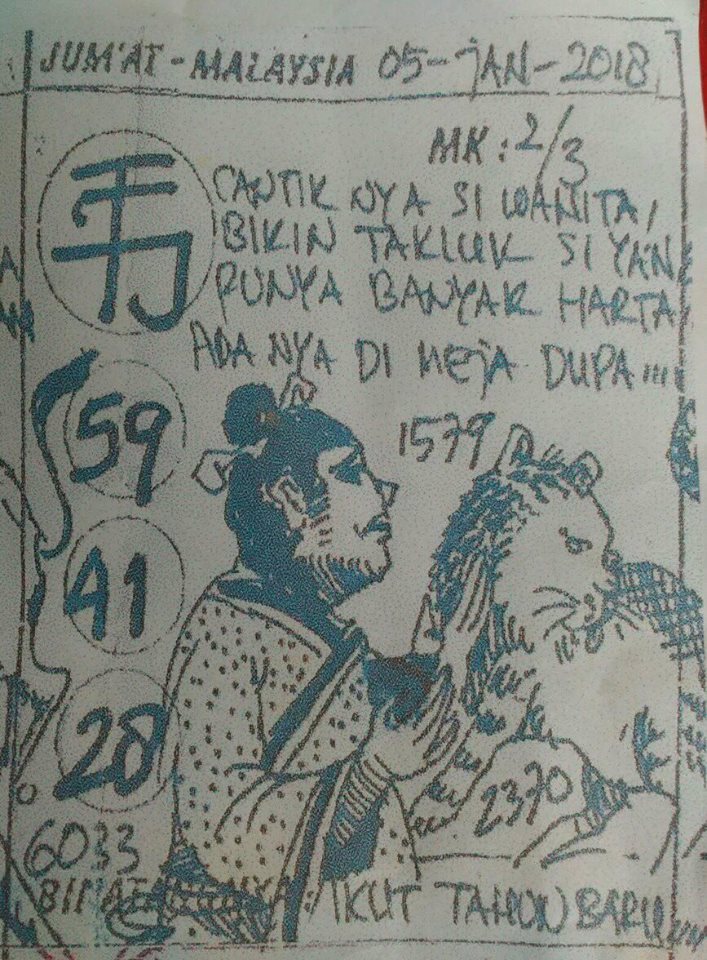 JUM'AT - MALAYSIA 05-JAN-2018
MK : 2/3
CANTIK NYA SI WANITA,
BIKIN TAKLUK SI YANG
PUNYA BANYAK HARTA,
ADA NYA DI MEJA DUPA
59
1579
41
28
2370
6033
BINATANGNYA : IKUT TAHUN BARU